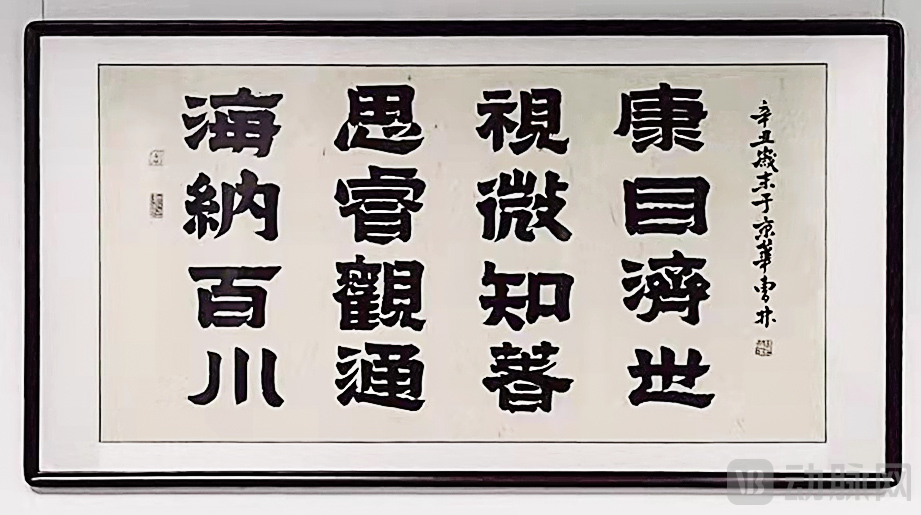 辛丑歲末于京華曹林
康目濟世
視微知著
思睿觀通
海納百川
动脉网